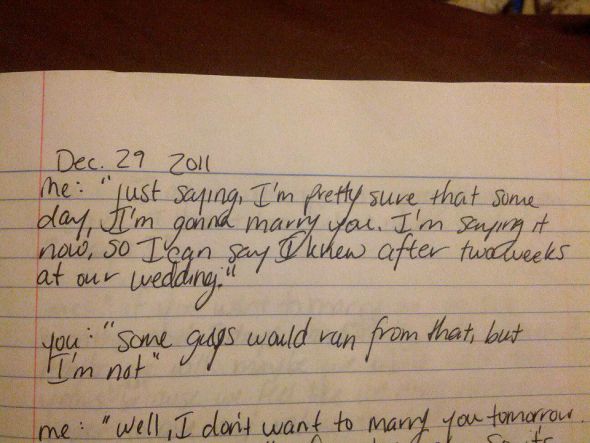 Dec. 29 2011
me: "just saying, I'm pretty sure that some
day, I'm gonna marry you. I'm saying it
now, so I can say I knew after two weeks
at our wedding."
you: "some guys would run from that, but
I'm not"
me: "well, I don't want to marry you tomorrow.